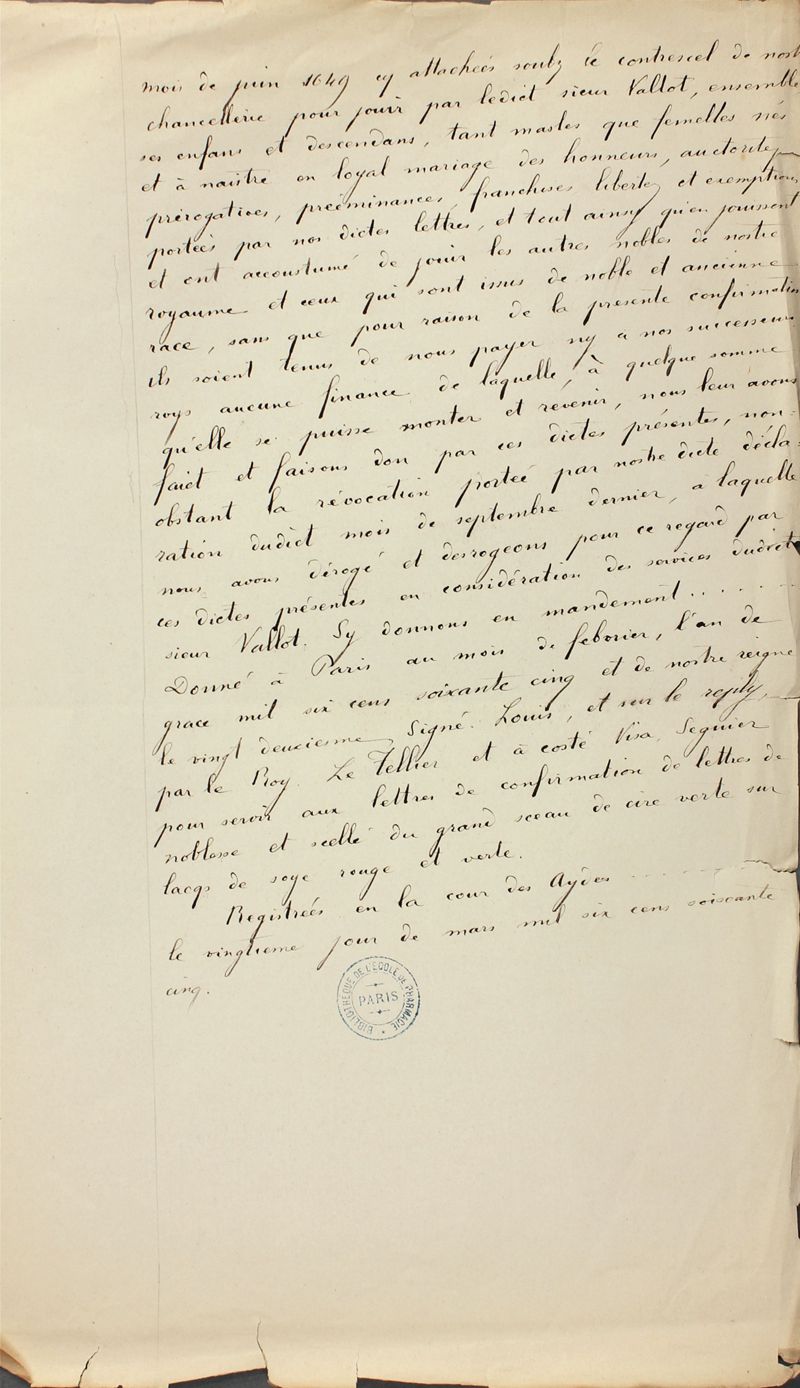 mois de juin 1649 cy attachées soubz le contrescel de nost
chancellerie pour jouir par ledict sieur Vallot, ensemble
ses enfans et descendans, tant masles que femelles nés
et à naistre en loyal mariage des honneurs, auctorite
prérogatives, prééminances, franchises libertez et exemptions
portées par nos dictes lettres, et tout ainsy qu'en jouissent
et ont accoustumé de jouir les autres nobles de nostre
royaume et ceux qui sont issus de noble et ancienne
race, sans que pour raison de la presente confirmation
ils soient tenus de nous payer ny a nos successeurs
roys aucune finance de laquelle, à quelque somme
qu'elle se puisse monter et revenir, nous leur avons
faict et faisons don par ces dictes présentes, non-
obstant la révocation portée par nostre dicte décla-
ration dudict mois de septembre dernier, a laquelle
nous avons dérogé et desrogeons pour ce regard par
ces dictes présentes en considération des services dudict
sieur Vallot. Sy donnons en mandement . . . . . .
Donné à Paris au mois de febvrier, l'an de
grace mil six cens soixante cinq et de nostre reigne
le vingt deuxiesme, Signé Louis, et sur le reply,
par le Roy. Le Tellier et à costé Visa Seguier
pour servir aux lettres de confirmation de lettres de
noblesse et scellé du grand sceau de cire verte sur
lacqs de soye rouge et verte.
Registrées en la cour des Aydes . . . . . .
le vingtieme jour de mars mil six cens soixante
cinq.
BIBLIOTHÈQUE DE L'ÉCOLE DE PHARMACIE
PARIS